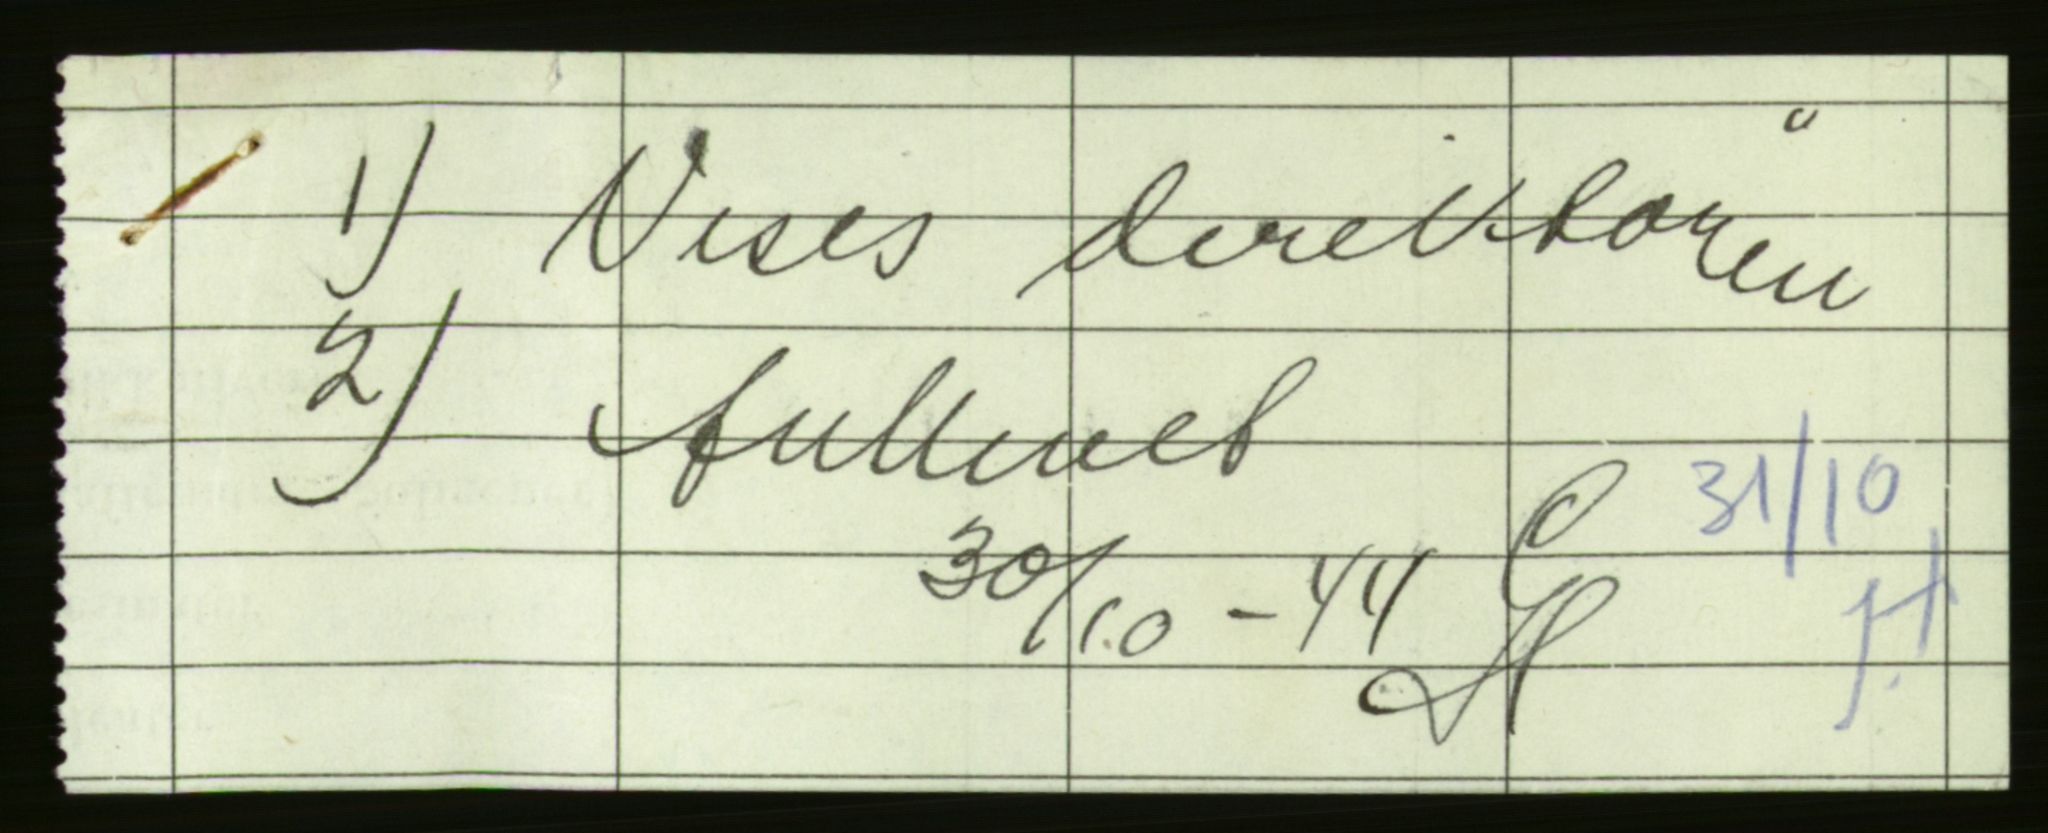 1) Vises direktören
2) Arkivet
30/10-44
31/10